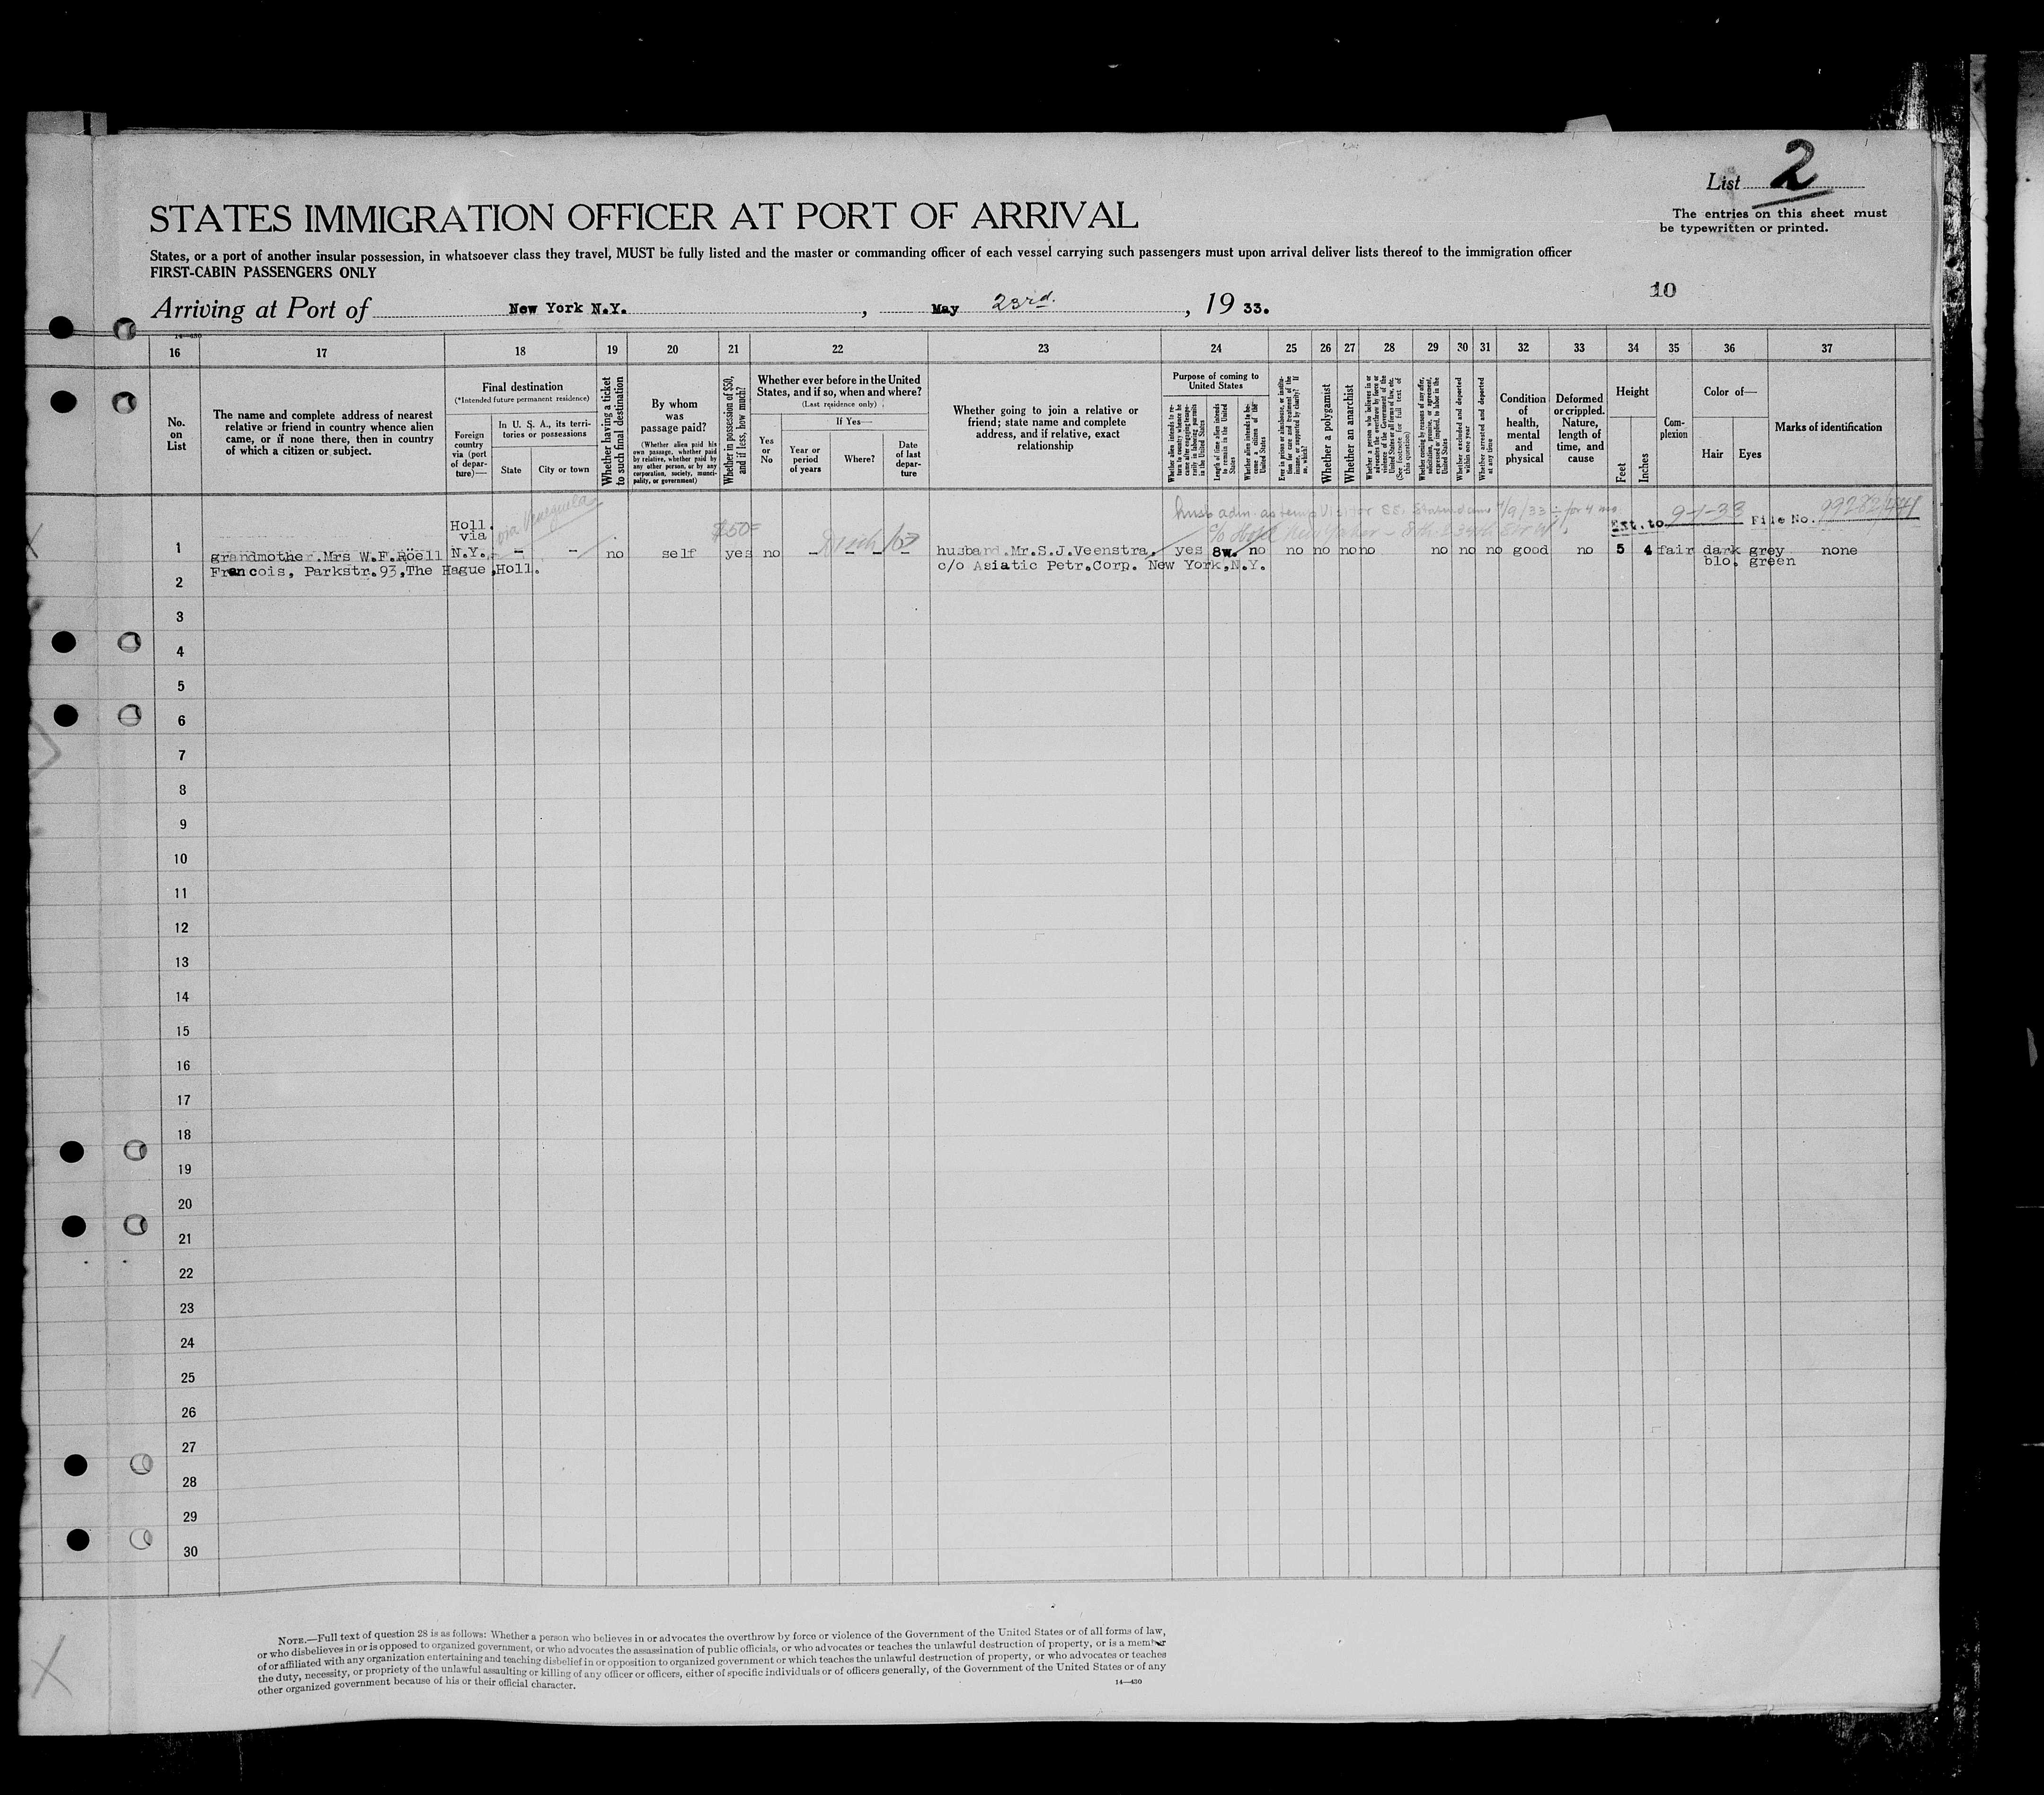 List 2
STATES IMMIGRATION OFFICER AT PORT OF ARRIVAL
The entries on this sheet must
be typewritten or printed.
States, or a port of another insular possession, in whatsoever class they travel, MUST be fully listed and the master or commanding officer of each vessel carrying such passengers must upon arrival deliver lists thereof to the immigration officer
FIRST-CABIN PASSENGERS ONLY
10
Arriving at Port of New York N.Y. , May 23rd. , 19 33.
14—430
16 17 18 19 20 21 22 23 24 25 26 27 28 29 30 31 32 33 34 35 36 37
No.
on
List
The name and complete address of nearest
relative or friend in country whence alien
came, or if none there, then in country
of which a citizen or subject.
Final destination
(*Intended future permanent residence)
Foreign
country
via (port
of depar-
ture)—
In U. S. A., its terri-
tories or possessions
State
City or town
Whether having a ticket
to such final destination
By whom
was
passage paid?
(Whether alien paid his
own passage, whether paid
by relative, whether paid by
any other person, or by any
corporation, society, munici-
pality, or government)
Whether in possession of $50,
and if less, how much?
Whether ever before in the United
States, and if so, when and where?
(Last residence only)
Yes
or
No
If Yes—
Year or
period
of years
Where?
Date
of last
depar-
ture
Whether going to join a relative or
friend; state name and complete
address, and if relative, exact
relationship
Purpose of coming to
United States
Whether alien intends to re-
turn to country whence he
came after engaging tempo-
rarily in laboring pursuits
in the United States
Length of time alien intends
to remain in the United
States
Whether alien intends to be-
come a citizen of the
United States
Ever in prison or almshouse, or institu-
tion for care and treatment of the
insane, or supported by charity? If
so, which?
Whether a polygamist
Whether an anarchist
Whether a person who believes in or
advocates the overthrow by force or
violence of the Government of the
United States or all forms of law, etc.
(See footnote for full text of
this question)
Whether coming by reasons of any offer,
solicitation, promise, or agreement,
expressed or implied, to labor in the
United States
Whether excluded and deported
within one year
Whether arrested and deported
at any time
Condition
of
health,
mental
and
physical
Deformed
or crippled.
Nature,
length of
time, and
cause
Height
Feet
Inches
Com-
plexion
Color of—
Hair
Eyes
Marks of identification
via Venezuela
husb adm. as temp Visitor SS. Statendam 4/9/33 for 4 mo.
Ext. to 9-1-33 File No. 99282/441
c/o Hotel New Yorker - 8th & 34th St N.Y.
Holl.
via
$50=
1 grandmother.Mrs W.F.Röell N.Y. – – no self yes no – – – – husband.Mr.S.J.Veenstra. yes 8w. no no no no no no no no good no 5 4 fair dark grey none
Francois, Parkstr.93,The Hague,Holl. c/o Asiatic Petr.Corp. New York,N.Y. blo. green
2
3
4
5
6
7
8
9
10
11
12
13
14
15
16
17
18
19
20
21
22
23
24
25
26
27
28
29
30
NOTE.—Full text of question 28 is as follows: Whether a person who believes in or advocates the overthrow by force or violence of the Government of the United States or of all forms of law,
or who disbelieves in or is opposed to organized government, or who advocates the assassination of public officials, or who advocates or teaches the unlawful destruction of property, or is a member
of or affiliated with any organization entertaining and teaching disbelief in or opposition to organized government or which teaches the unlawful destruction of property, or who advocates or teaches
the duty, necessity, or propriety of the unlawful assaulting or killing of any officer or officers, either of specific individuals or of officers generally, of the Government of the United States or of any
other organized government because of his or their official character.
14—430